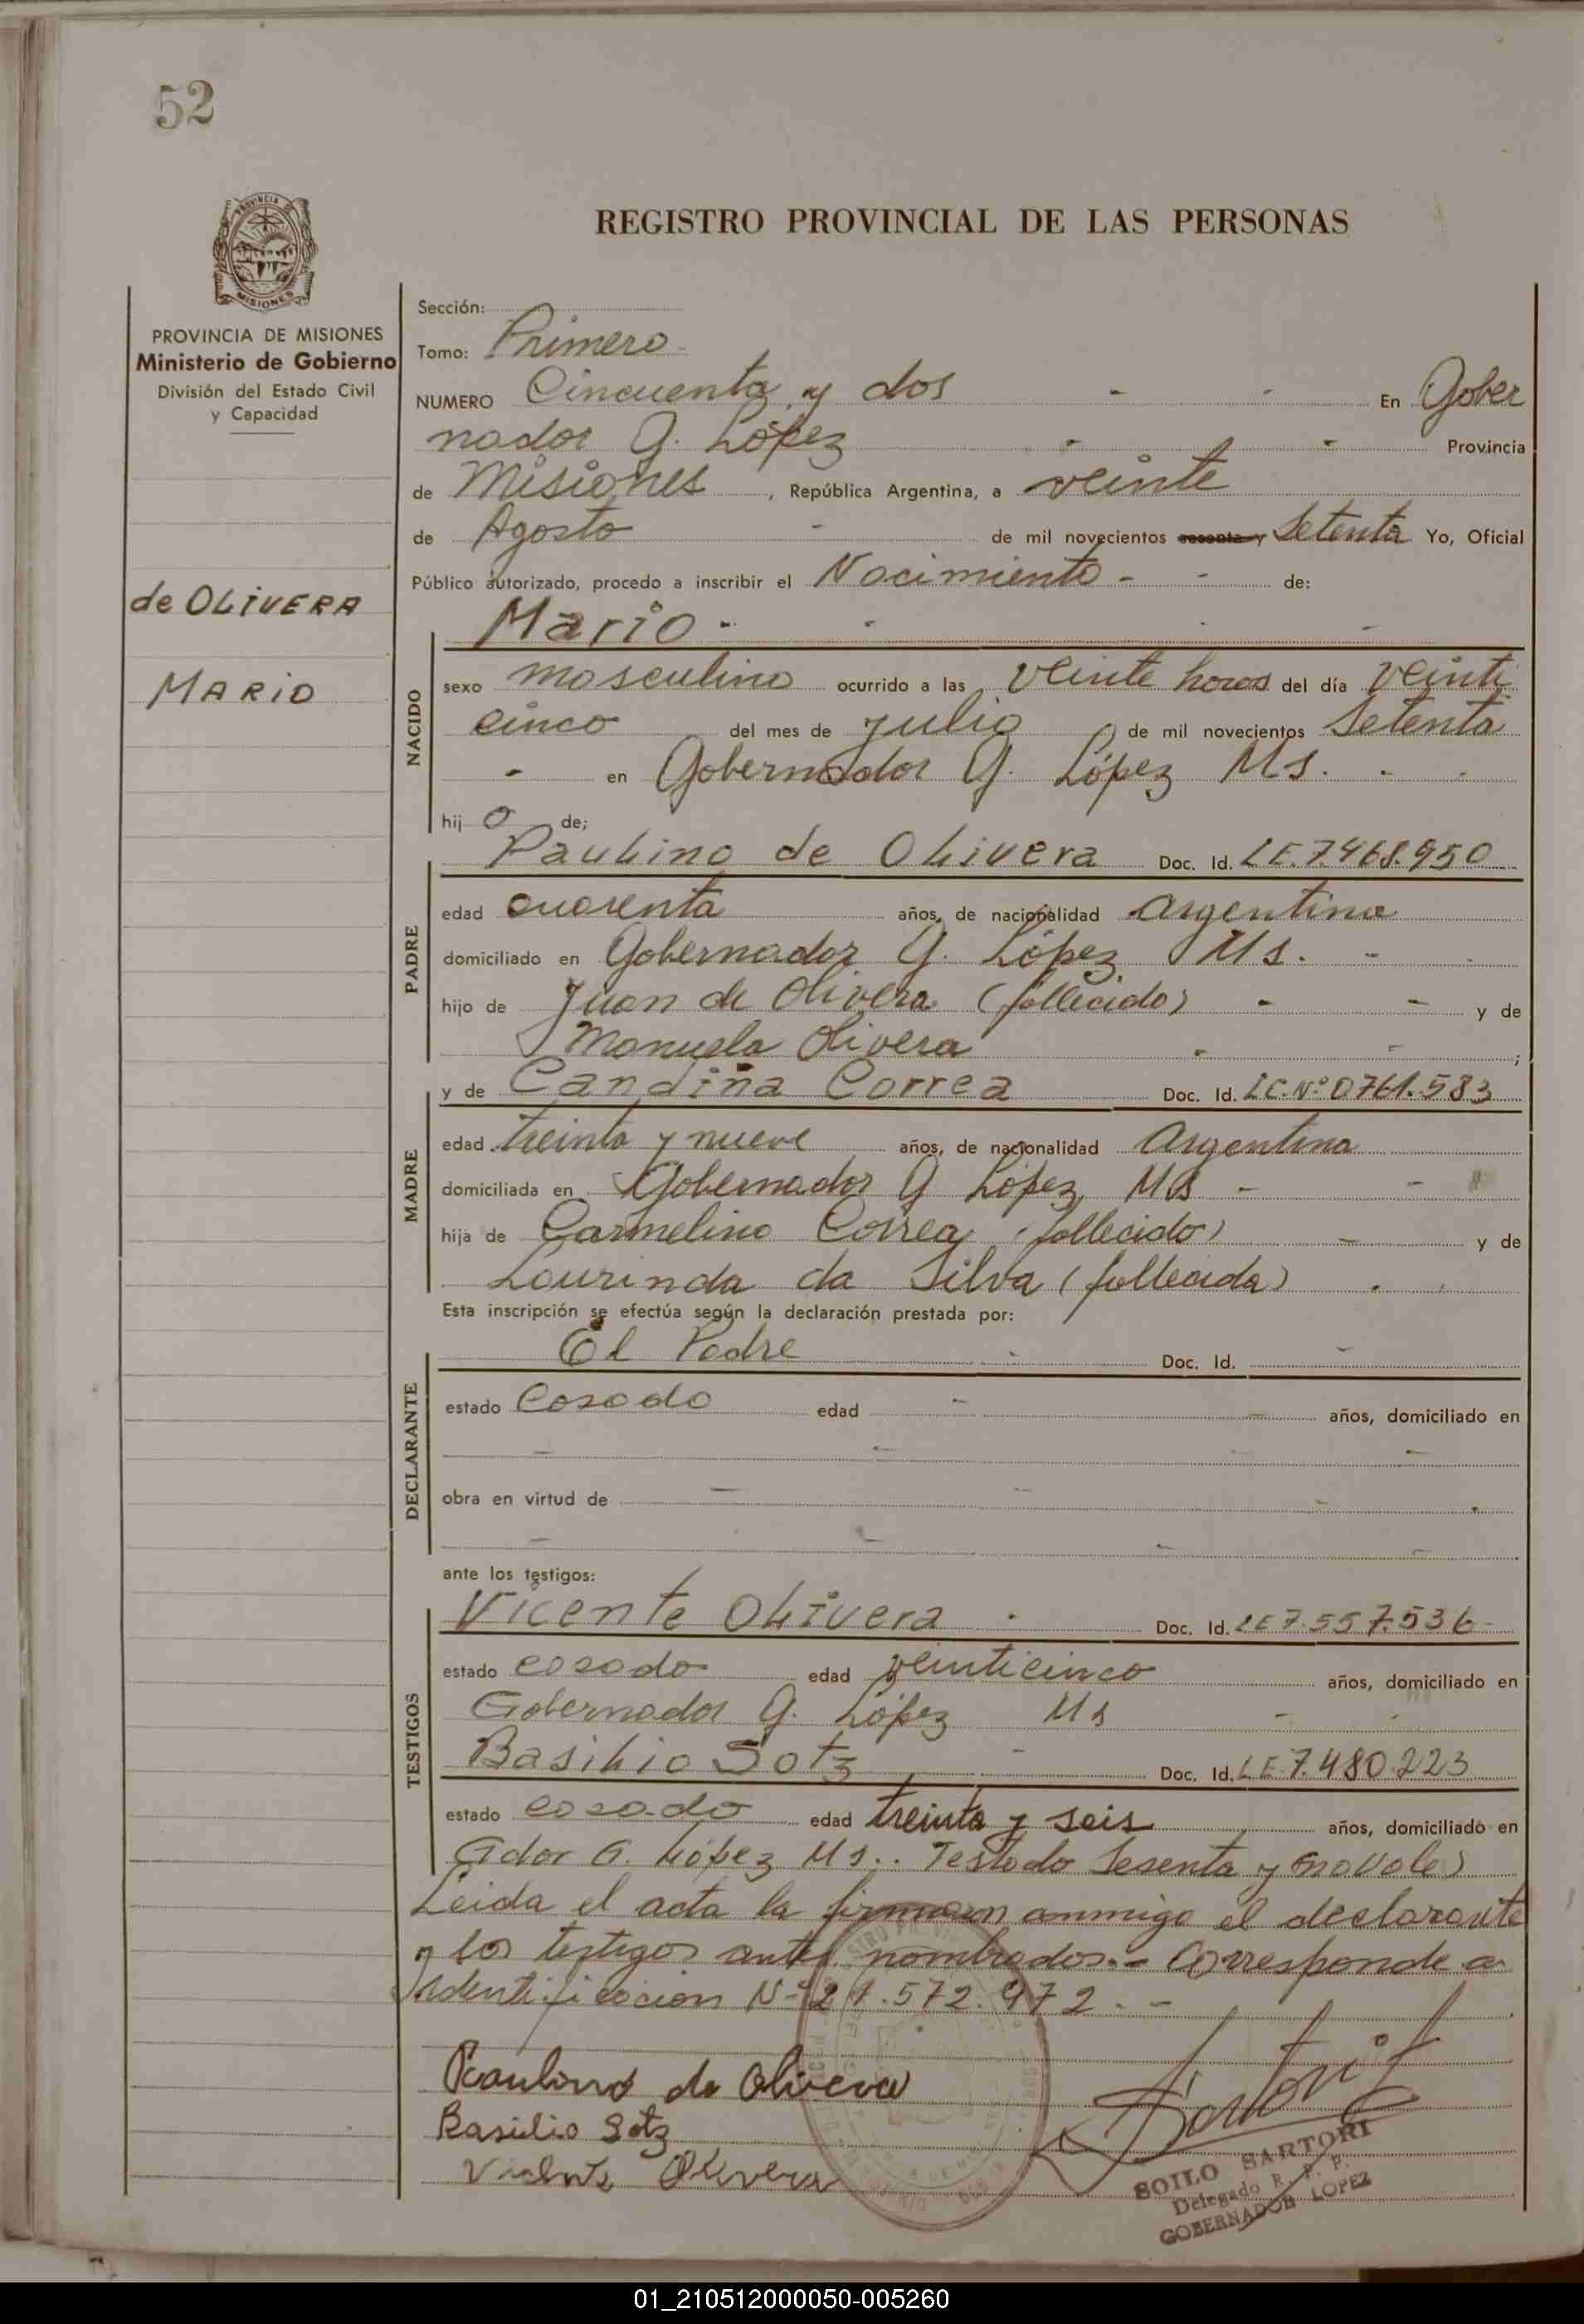 52
REGISTRO PROVINCIAL DE LAS PERSONAS
PROVINCIA
MISIONES
PROVINCIA DE MISIONES
Ministerio de Gobierno
División del Estado Civil
y Capacidad
de OLIVERA
MARIO
Sección:
Tomo: Primero
NUMERO Cincuenta y dos - - En Gober
nador G. López - - Provincia
de Misiones, República Argentina, a veinte
de Agosto - de mil novecientos sesenta y Setenta Yo, Oficial
Público autorizado, procedo a inscribir el Nacimiento - - de:
Mario - - -
NACIDO
sexo masculino ocurrido a las veinte horas del día veinti
cinco del mes de julio de mil novecientos Setenta
- en Gobernador G. López Ms. - -
hij o de;
PADRE
Paulino de Olivera Doc. Id. LE.7.468.950
edad cuarenta años, de nacionalidad Argentina
domiciliado en Gobernador G. López Ms. - -
hijo de Juan de Olivera (fallecido) - - y de
Manuela Olivera - - ;
MADRE
y de Candiña Correa Doc. Id. LC.Nº 0761.583
edad treinta y nueve años, de nacionalidad Argentina
domiciliada en Gobernador G López Ms - -
hija de Carmelino Correa (fallecido) - y de
Lourinda da Silva (fallecida) - -
Esta inscripción se efectúa según la declaración prestada por:
DECLARANTE
El Padre - Doc. Id. -
estado Casado edad - - años, domiciliado en
- - - -
obra en virtud de - - - -
- - - -
ante los testigos:
TESTIGOS
Vicente Olivera - Doc. Id. LE 7.557.536-
estado casado edad veinticinco años, domiciliado en
Gobernador G. López Ms - -
Basilio Sotz - Doc. Id. LE.7.480.223
estado casado edad treinta y seis años, domiciliado en
Gdor G. López Ms.. Testado Sesenta y (no vale)
Leida el acta la firmaron conmigo el declarante
y los testigos antes nombrados.- Corresponde a
Identificacion Nº 21.572.972. -
Paulino de Olivera
Basilio Sotz
Vicente Olivera
Sartori
SOILO SARTORI
Delegado R. P. P.
GOBERNADOR LOPEZ
01_210512000050-005260